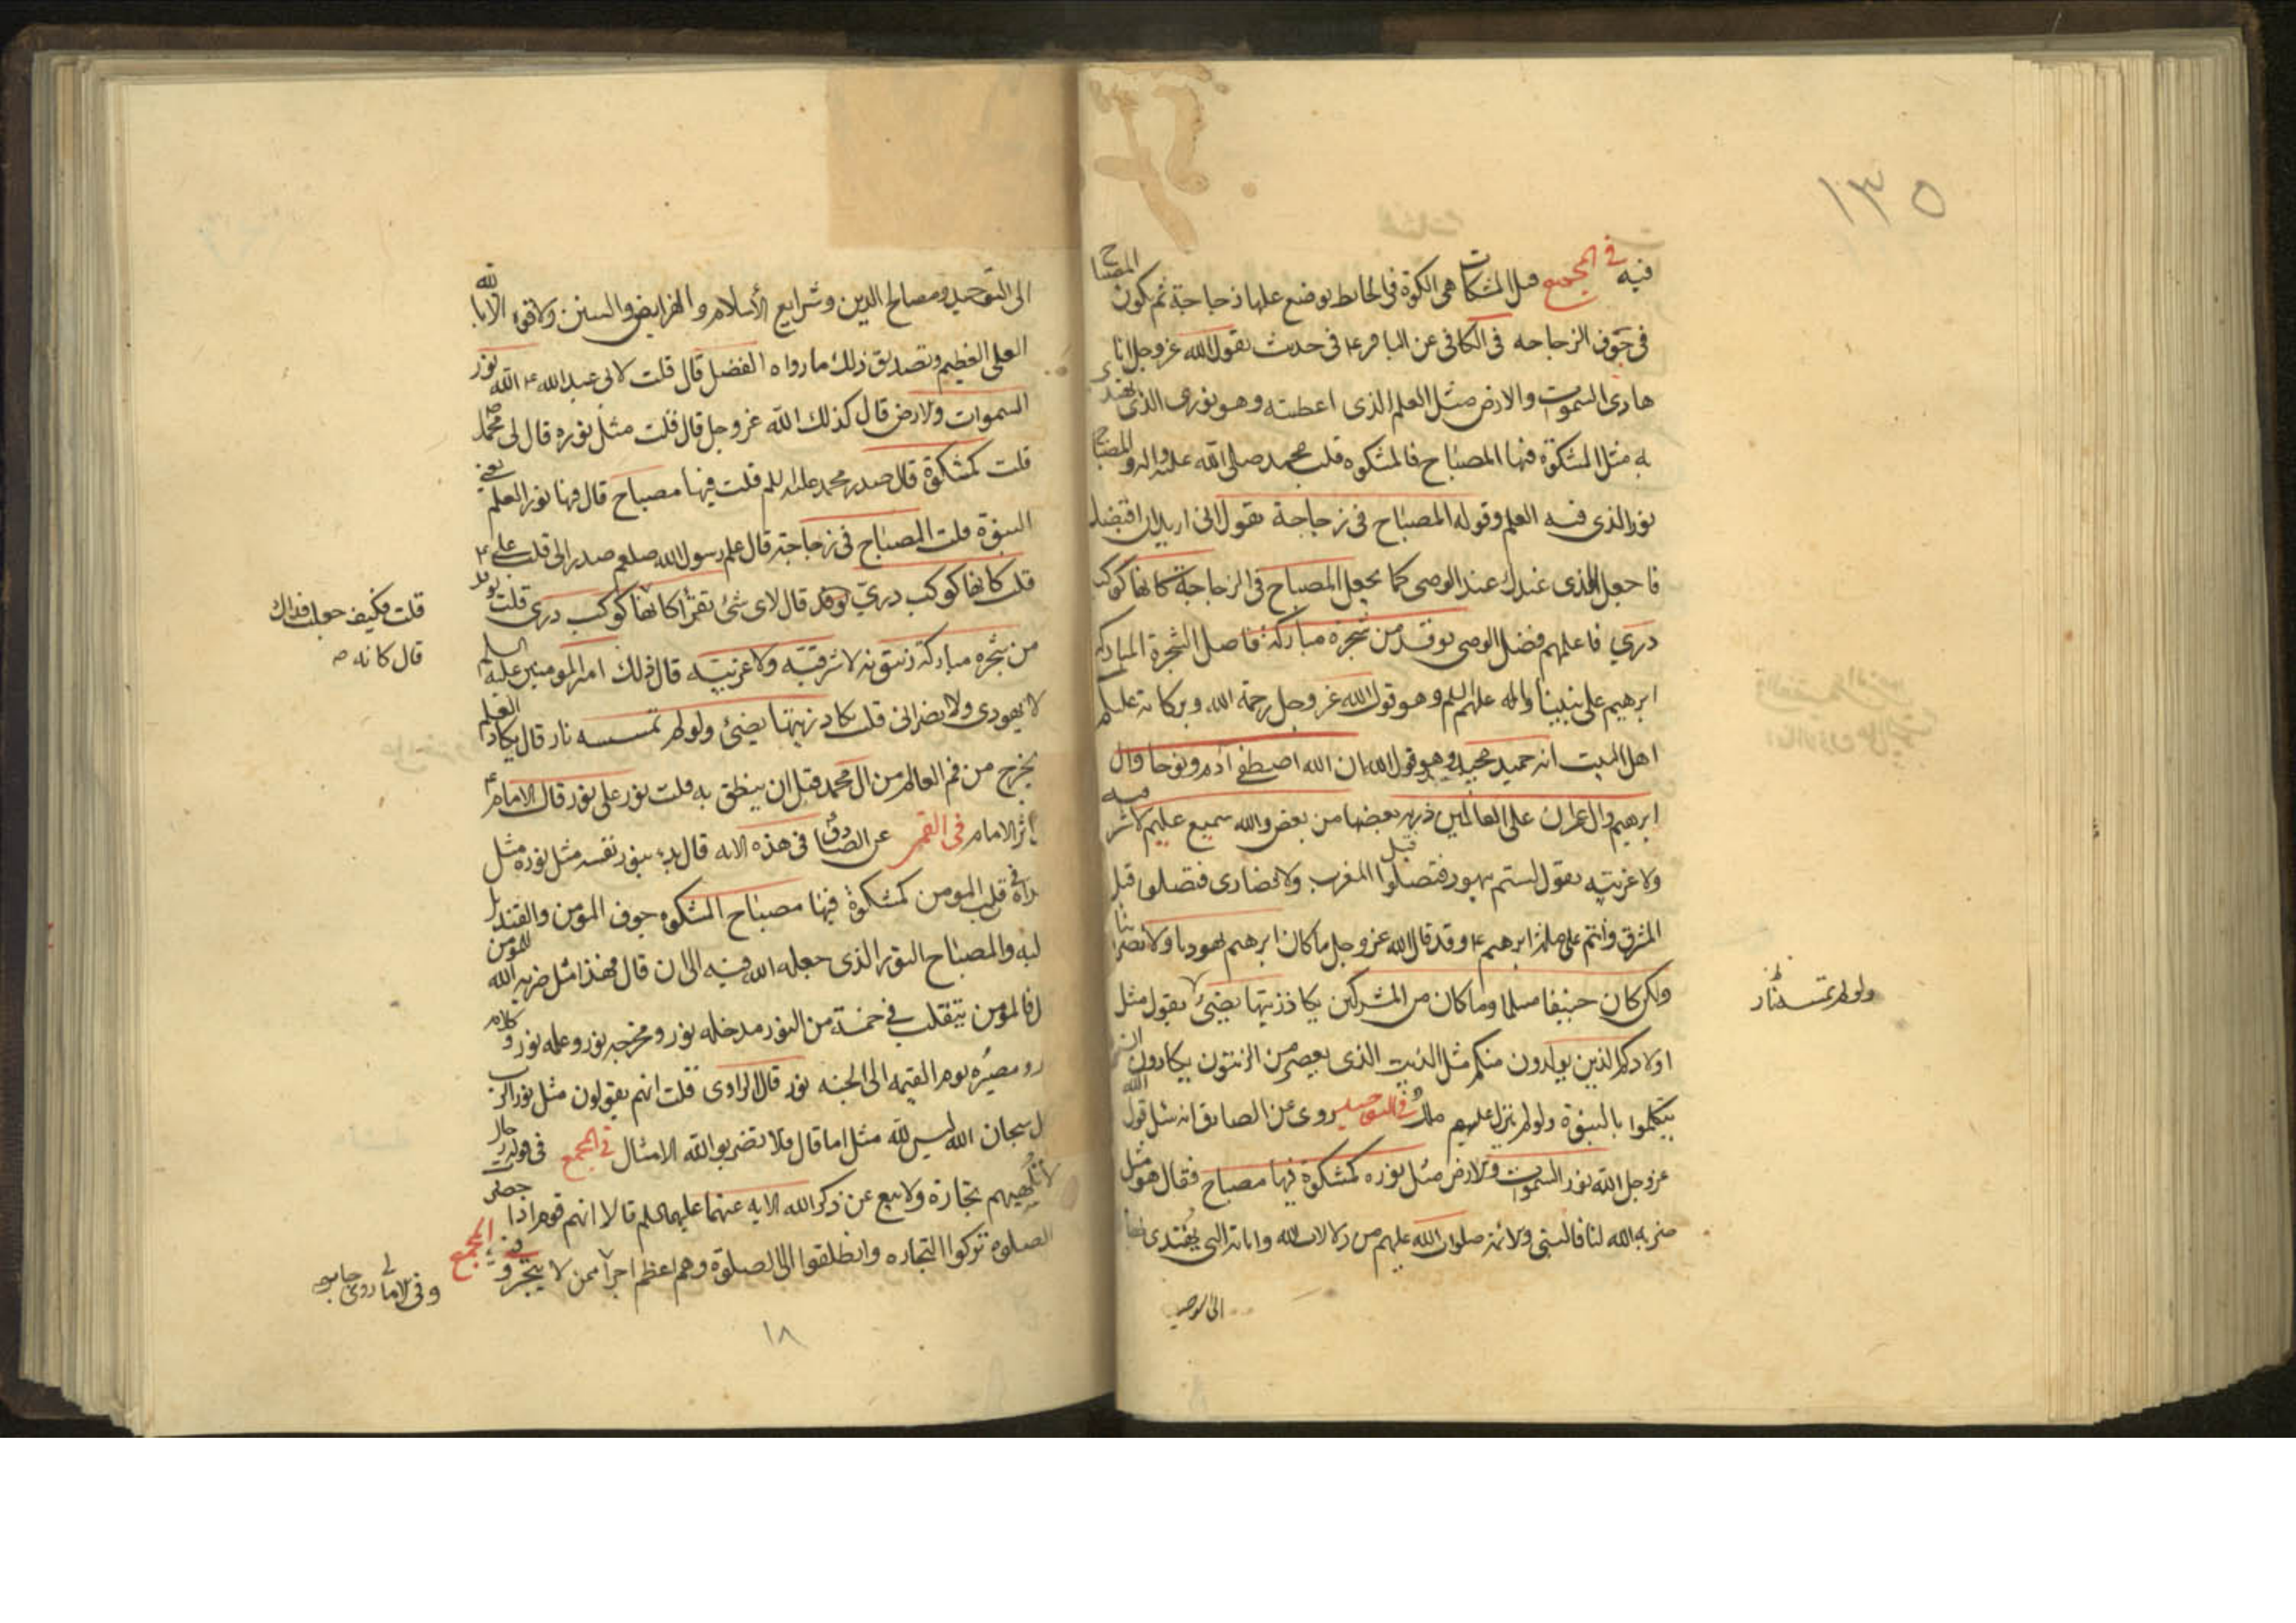 ١٣٥
فيه في المجمع قيل المشكات هي الكوة في الحايط يوضع عليها زجاجة ثم يكون المصباح
في جوف الزجاجه في الكافي عن الباقر ع في حديث يقول الله عز وجل انا
هادى السموات والارض مثل العلم الذى اعطيته وهو نورى الذى يهتدى
به مثل المشكوة فيها المصباح فالمشكوه قلب محمد صلى الله عليه واله والمصباح
نور الذى فيه العلم وقوله المصباح في زجاجة يقول انى اريد ان اقبضك
فاجعل الذى عندك عند الوصى كما يجعل المصباح في الزجاجة كانها كوكب
دري فاعلمهم فضل الوصى يوقد من شجرة مباركة فاصل الشجرة المباركه
ابرهيم على نبينا واله عليهم السلم وهو قول الله عز وجل رحمة الله وبركاته عليكم
اهل البيت انه حميد مجيد وهو قول الله ان الله اصطفى ادم ونوحا وال
ابرهيم وال عمران على العالمين ذرية بعضها من بعض والله سميع عليم لا شرقيه
ولا غربيه يقول لستم بيهود فتصلوا قبل المغرب ولا نصارى فتصلوا قبل
المشرق وانتم على ملة ابرهيم ع وقد قال الله عز وجل ما كان ابرهيم يهوديا ولا نصرانيا
ولكن كان حنيفا مسلما وما كان من المشركين يكاد زيتها يضيئ يقول مثل
ولو لم تمسسه نار
اولادكم الذين يولدون منكم مثل الزيت الذى يعصر من الزيتون يكادون ان
يتكلموا بالنبوة ولو لم ينزل عليهم ملك في التوحيد روى عن الصادق انه سئل قول الله
عز وجل الله نور السموات والارض مثل نوره كمشكوة فيها مصباح فقال هو مثل
ضربه الله لنا فالنبي والائمة صلوات الله عليهم من دلالات الله واياته التي يهتدى بها
الى التوحيد
الى التوحيد ومصالح الدين وشرايع الاسلام والفرايض والسنن ولا قوة الا بالله
العلي العظيم وتصديق ذلك ما رواه الفضل قال قلت لابى عبد الله ع الله نور
السموات والارض قال كذلك الله عز وجل قال قلت مثل نوره قال لى محمد ص
قلت كمشكوة قال صدر محمد عليه السلم قلت فيها مصباح قال فيها نور العلم يعنى
النبوة قلت المصباح في زجاجة قال علم رسول الله صلعم صدر الى قلب على ع
قلت كانها كوكب دري يوقد قال لاى شئ تقرأ كانها كوكب درى قلت يوقد
قلت فكيف جعلت فداك
قال كانه ص
من شجره مباركة زيتونه لا شرقيه ولا غربيه قال ذلك امير المومنين عليه السلم
لا يهودى ولا نصرانى قلت يكاد زيتها يضيئ ولو لم تمسسه نار قال يكاد العلم
يخرج من فم العالم من ال محمد قبل ان ينطق به قلت نور على نور قال الامام ع
اثر الامام في القمى عن الصادق في هذه الايه قال بدء بنور نفسه مثل نوره مثل
هداه في قلب المومن كمشكوة فيها مصباح المشكوه جوف المومن والقنديل
قلبه والمصباح النور الذى جعله الله فيه الى ان قال فهذا مثل ضربه الله للمومن
قال فالمومن يتقلب في خمسة من النور مدخله نور ومخرجه نور وعلمه نور وكلامه
نور ومصيره يوم القيمه الى الجنه نور قال الراوى قلت انهم يقولون مثل نور الرب
قال سبحان الله ليس لله مثل اما قال فلا تضربوا لله الامثال في المجمع في قوله رجال
لا تلهيهم تجارة ولا بيع عن ذكر الله الايه عنهما عليهما السلم قالا انهم قوم اذا حضرت
الصلوة تركوا التجاره وانطلقوا الى الصلوة وهم اعظم اجرا ممن لا يتجر وفي المجمع
١٨